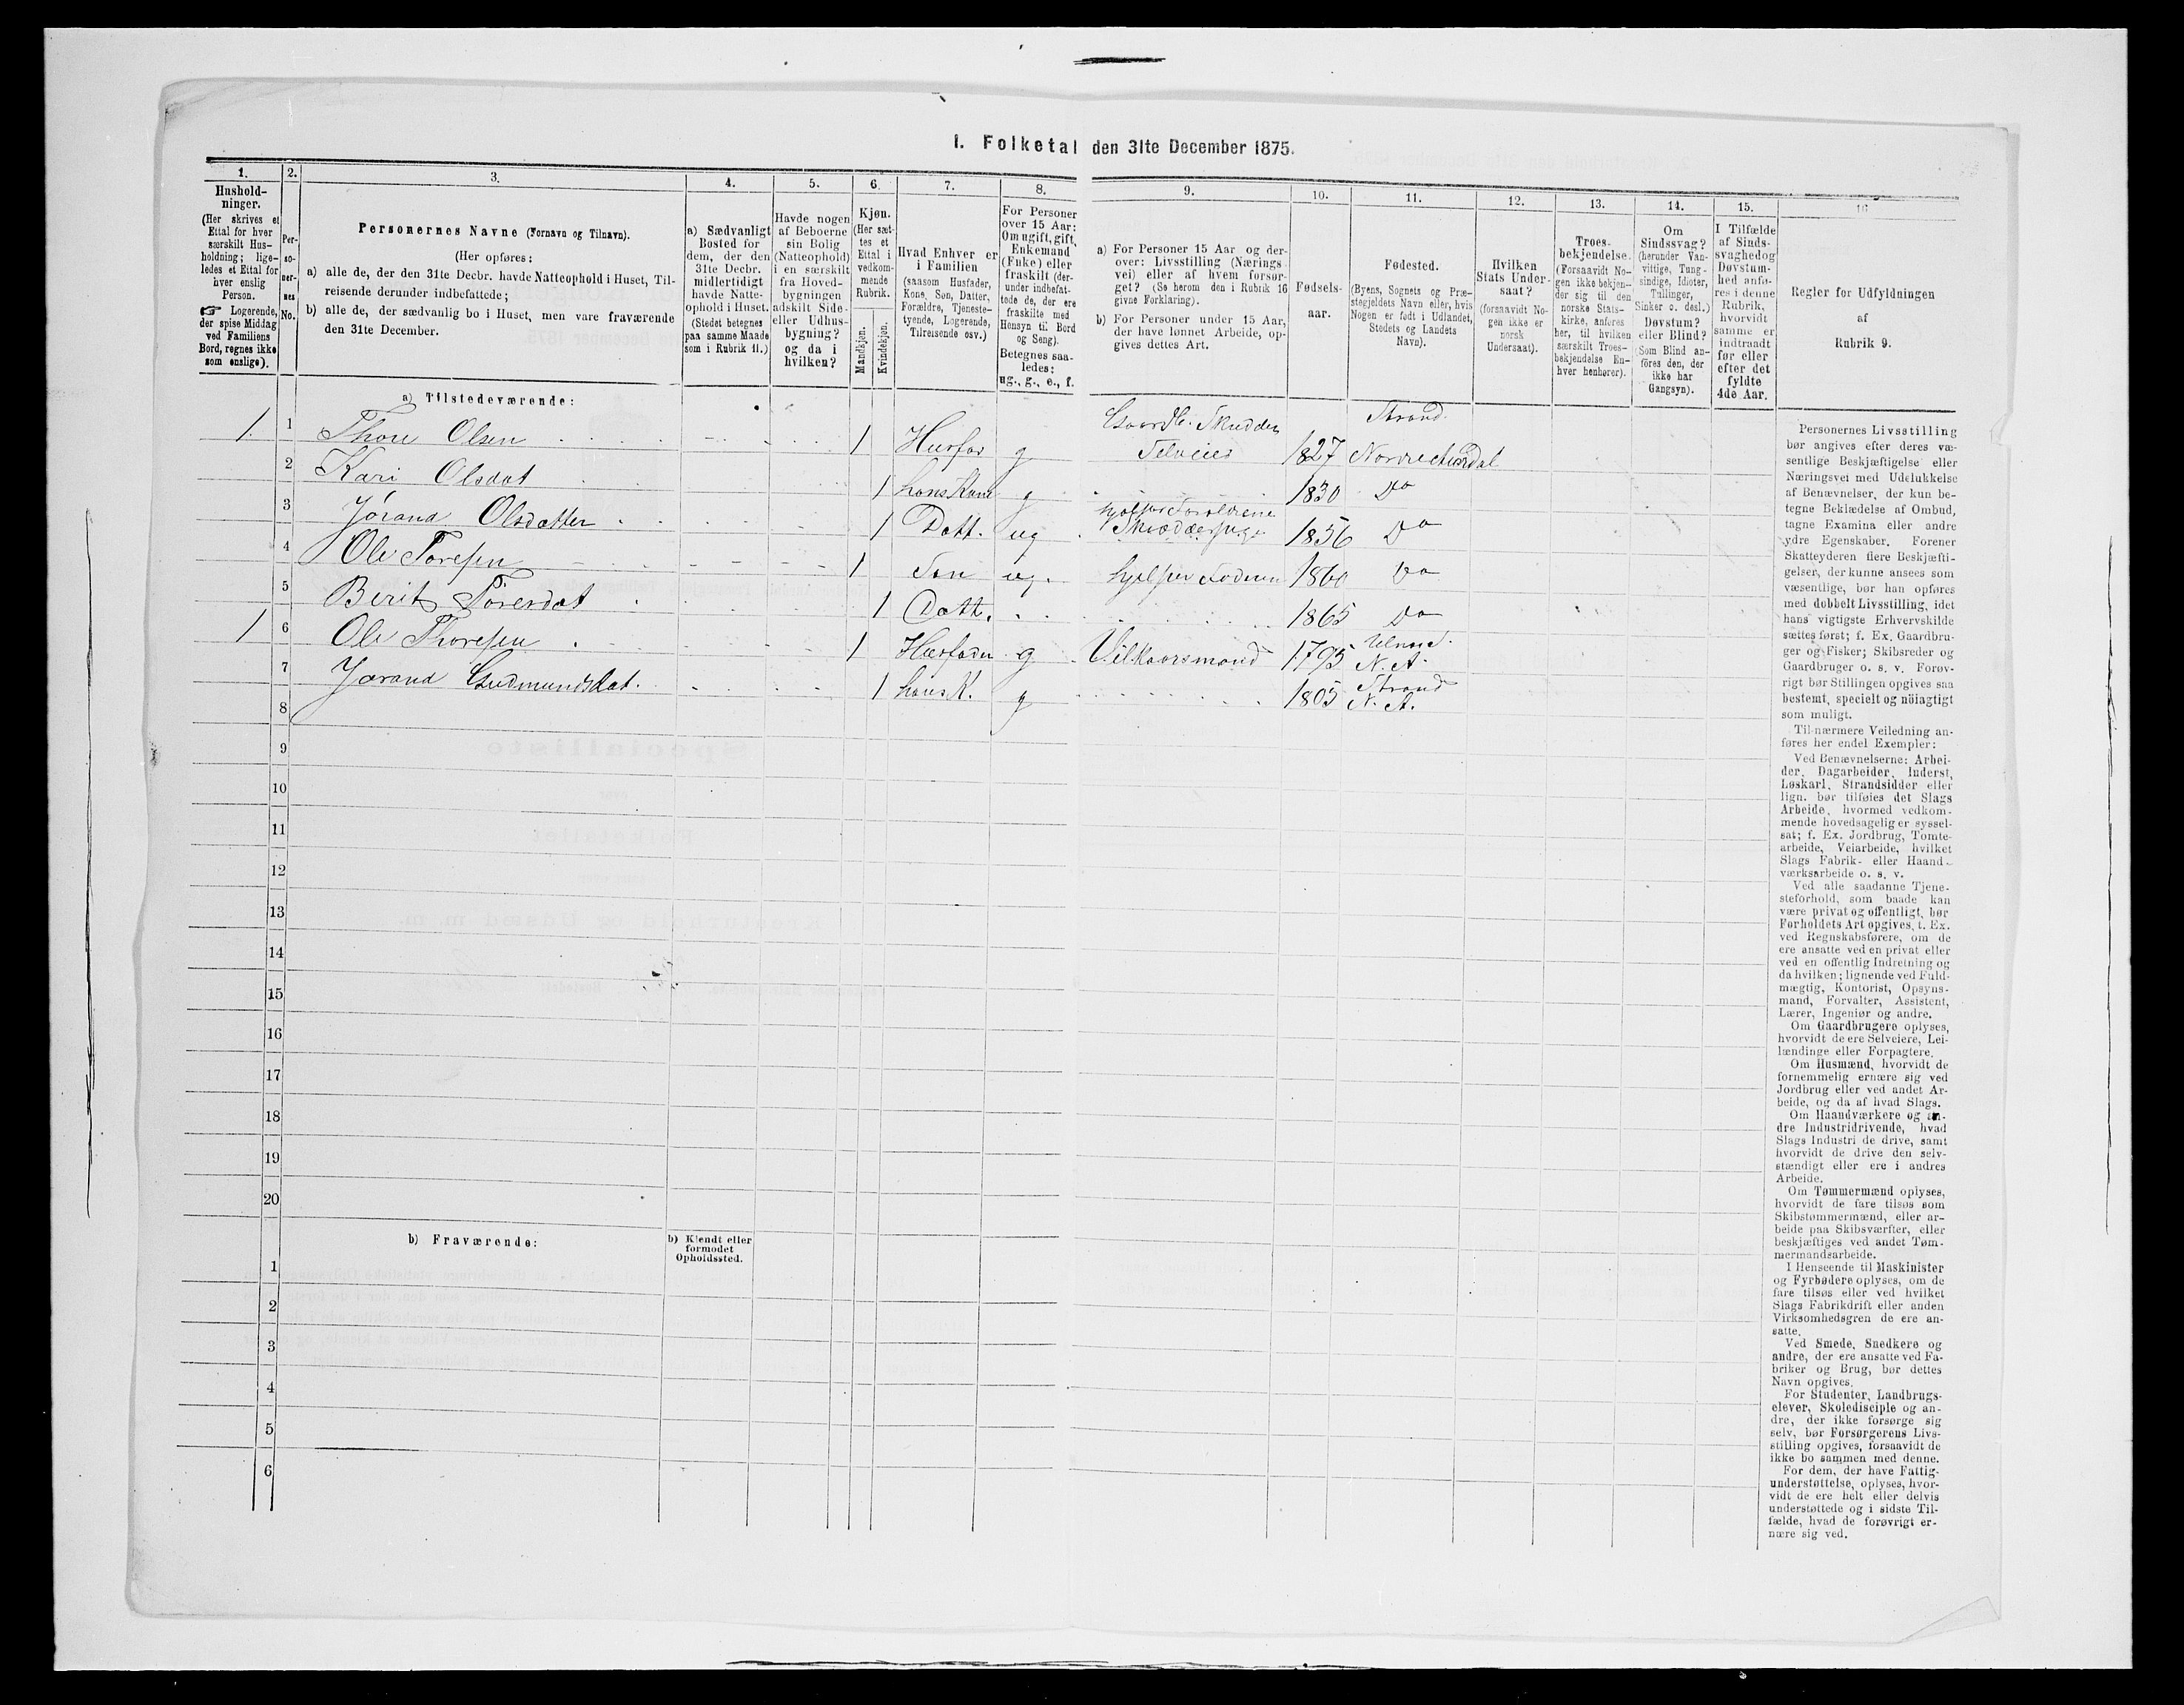 I. Folketal den 31te December 1875.
1.
Hushold-
ninger.
(Her skrives et
Ettal for hver
særskilt Hus-
holdning; lige-
ledes et Ettal for
hver enslig
Person.
☞ Logerende,
der spise Middag
ved Familiens
Bord, regnes ikke
som enslige).
2.
Per-
so-
ner-
nes
No.
3.
Personernes Navne (Fornavn og Tilnavn).
(Her opføres:
a) alle de, der den 31te Decbr. havde Natteophold i Huset, Til-
reisende derunder indbefattede;
b) alle de, der sædvanlig bo i Huset, men vare fraværende
den 31te December.
4.
a) Sædvanligt
Bosted for
dem, der den
31te Decbr.
midlertidigt
havde Natte-
ophold i Huset.
(Stedet betegnes
paa samme Maade
som i Rubrik 11.)
5.
Havde nogen
af Beboerne
sin Bolig
(Natteophold)
i en særskilt
fra Hoved-
bygningen
adskilt Side-
eller Udhus-
bygning?
og da i
hvilken?
6.
Kjøn.
(Her sæt-
tes et
Ettal i
vedkom-
mende
Rubrik.
Mandkjøn.
Kvindekjøn.
7.
Hvad Enhver er
i Familien
(saasom Husfader,
Kone, Søn, Datter,
Forældre, Tjeneste-
tyende, Logerende,
Tilreisende osv.)
8.
For Personer
over 15 Aar:
Om ugift, gift,
Enkemand
(Enke) eller
fraskilt (der-
under indbefat-
tede de, der ere
fraskilte med
Hensyn til Bord
og Seng).
Betegnes saa-
ledes:
ug., g., e., f.
9.
a) For Personer 15 Aar og der-
over: Livsstilling (Nærings-
vei) eller af hvem forsør-
get? (Se herom den i Rubrik 16
givne Forklaring).
b) For Personer under 15 Aar,
der have lønnet Arbeide, op-
gives dettes Art.
10.
Fødsels-
aar.
11.
Fødested.
(Byens, Sognets og Præ-
stegjeldets Navn eller, hvis
Nogen er født i Udlandet,
Stedets og Landets
Navn).
12.
Hvilken
Stats Under-
saat?
(forsaavidt No-
gen ikke er
norsk
Undersaat).
13.
Troes-
bekjendelse.
(Forsaavidt No-
gen ikke bekjen-
der sig til den
norske Stats-
kirke, anføres
her, til hvilken
særskilt Troes-
bekjendelse En-
hver henhører).
14.
Om
Sindssvag?
(herunder Van-
vittige, Tung-
sindige, Idioter,
Tullinger,
Sinker o. desl.)
Døvstum?
eller Blind?
(Som Blind an-
føres den, der
ikke har
Gangsyn).
15.
I Tilfælde
af Sinds-
svaghed og
Døvstum-
hed anfø-
res i denne
Rubrik,
hvorvidt
samme er
indtraadt
før eller
efter det
fyldte
4de Aar.
16
Regler for Udfyldningen
af
Rubrik 9.
a) Tilstedeværende:
Strand
1. 1 Thore Olsen 1 Husfar g Selveier 1827
2 Kari Olsdat 1 hans Kone g 1830 Do
hjelper Forældrene
3 Jórand Olsdatter 1 Datt. ug 1856 Do
4 Ole Toresen 1 Søn ug. hjelper Faderen 1860 Do
5 Berit Toresdat 1 Datt. 1865 Do
Ulnæs
1 6 Ole Thoresen 1 Husfader g Vilkaarsmand 1795 N. A.
Strand
7 Jørand Gudmundsdat. 1 hans K. g 1805 N. A.
8
9
10
11
12
13
14
15
16
17
18
19
20
b) Fraværende:
b) Kjendt eller
formodet
Opholdssted.
1
2
3
4
5
6
Personernes Livsstilling
bør angives efter deres væ-
sentlige Beskjæftigelse eller
Næringsvei med Udelukkelse
af Benævnelser, der kun be-
tegne Beklædelse af Ombud,
tagne Examina eller andre
ydre Egenskaber. Forener
Skatteyderen flere Beskjæfti-
gelser, der kunne ansees som
væsentlige, bør han opføres
med dobbelt Livsstilling, idet
hans vigtigste Erhvervskilde
sættes først; f. Ex. Gaardbru-
ger og Fisker; Skibsreder og
Gaardbruger o. s. v. Forøv-
rigt bør Stillingen opgives saa
bestemt, specielt og nöiagtigt
som muligt.
Til nærmere Veiledning an-
føres her endel Exempler:
Ved Benævnelserne: Arbei-
der, Dagarbeider, Inderst,
Løskarl, Strandsidder eller
lign. bør tilføies det Slags
Arbeide, hvormed vedkom-
mende hovedsagelig er syssel-
sat; f. Ex. Jordbrug, Tomte-
arbeide, Veiarbeide, hvilket
Slags Fabrik- eller Haand-
værksarbeide o. s. v.
Ved alle saadanne Tjene-
steforhold, som baade kan
være privat og offentligt, bør
Forholdets Art opgives, t. Ex.
ved Regnskabsførere, om de
ere ansatte ved en privat eller
ved en offentlig Indretning og
da hvilken; lignende ved Fuld-
mægtig, Kontorist, Opsyns-
mand, Forvalter, Assistent,
Lærer, Ingeniør og andre.
Om Gaardbrugere oplyses,
hvorvidt de ere Selveiere, Lei-
lændinge eller Forpagtere.
Om Husmænd, hvorvidt de
fornemmelig ernære sig ved
Jordbrug eller ved andet Ar-
beide, og da af hvad Slags.
Om Haandværkere og an-
dre Industridrivende, hvad
Slags Industri de drive, samt
hvorvidt de drive den selv-
stændigt eller ere i andres
Arbeide.
Om Tømmermænd oplyses,
hvorvidt de fare tilsøs som
Skibstømmermænd, eller ar-
beide paa Skibsværfter, eller
beskjæftiges ved andet Tøm-
mermandsarbeide.
I Henseende til Maskinister
og Fyrbødere oplyses, om de
fare tilsøs eller ved hvilket
Slags Fabrikdrift eller anden
Virksomhedsgren de ere an-
satte.
Ved Smede, Snedkere og
andre, der ere ansatte ved Fa-
briker og Brug, bør dettes
Navn opgives.
For Studenter, Landbrugs-
elever, Skoledisciple og an-
dre, der ikke forsørge sig
selv, bør Forsørgerens Livs-
stilling opgives, forsaavidt de
ikke bo sammen med denne.
For dem, der have Fattig-
understøttelse, oplyses, hvor-
vidt de ere helt eller delvis
understøttede og i sidste Til-
fælde, hvad de forøvrigt er-
nære sig ved.